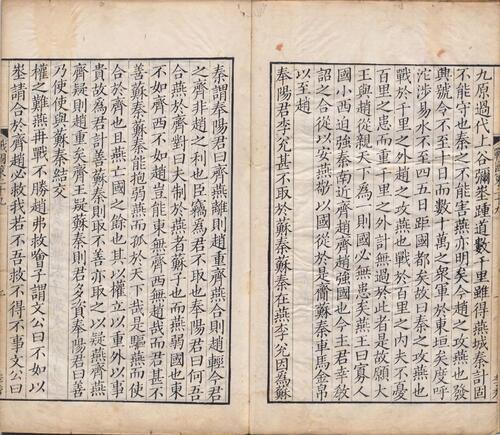 九原過代上谷彌埊踵道數千里雖得燕城秦計固
不能守也秦之不能害燕亦明矣今趙之攻燕也發
興號令不至十日而數十萬之衆軍於東垣矣度呼
沱涉易水不至四五日距國都矣故曰秦之攻燕也
戰於千里之外趙之攻燕也戰於百里之内夫不憂
百里之患而重千里之外計無過於此者是故願大
王與趙從親天下為一則國必無患矣燕王曰寡人
國小西迫強秦南近齊趙齊趙強國也今主君幸教
詔之合從以安燕敬以國從於是齎蘇秦車馬金帛
以至趙
奉陽君李兌甚不取於蘇秦蘇秦在燕李兌因為蘇
秦謂奉陽君曰齊燕離則趙重齊燕合則趙輕今君
之齊非趙之利也臣竊為君不取也奉陽君曰何吾
合燕於齊對曰夫制於燕者蘇子也而燕弱國也東
不如齊西不如趙豈能東無齊西無趙哉而君甚不
善蘇秦蘇秦能抱弱燕而孤於天下哉是驅燕而使
合於齊也且燕亡國之餘也其以權立以重外以事
貴故為君計善蘇秦則取不善亦取之以疑燕齊燕
齊疑則趙重矣齊王疑蘇秦則君多資奉陽君曰善
乃使使與蘇秦結交
權之難燕再戰不勝趙弗救噲子謂文公曰不如以
埊請合於齊趙必救我若不吾救不得不事文公曰